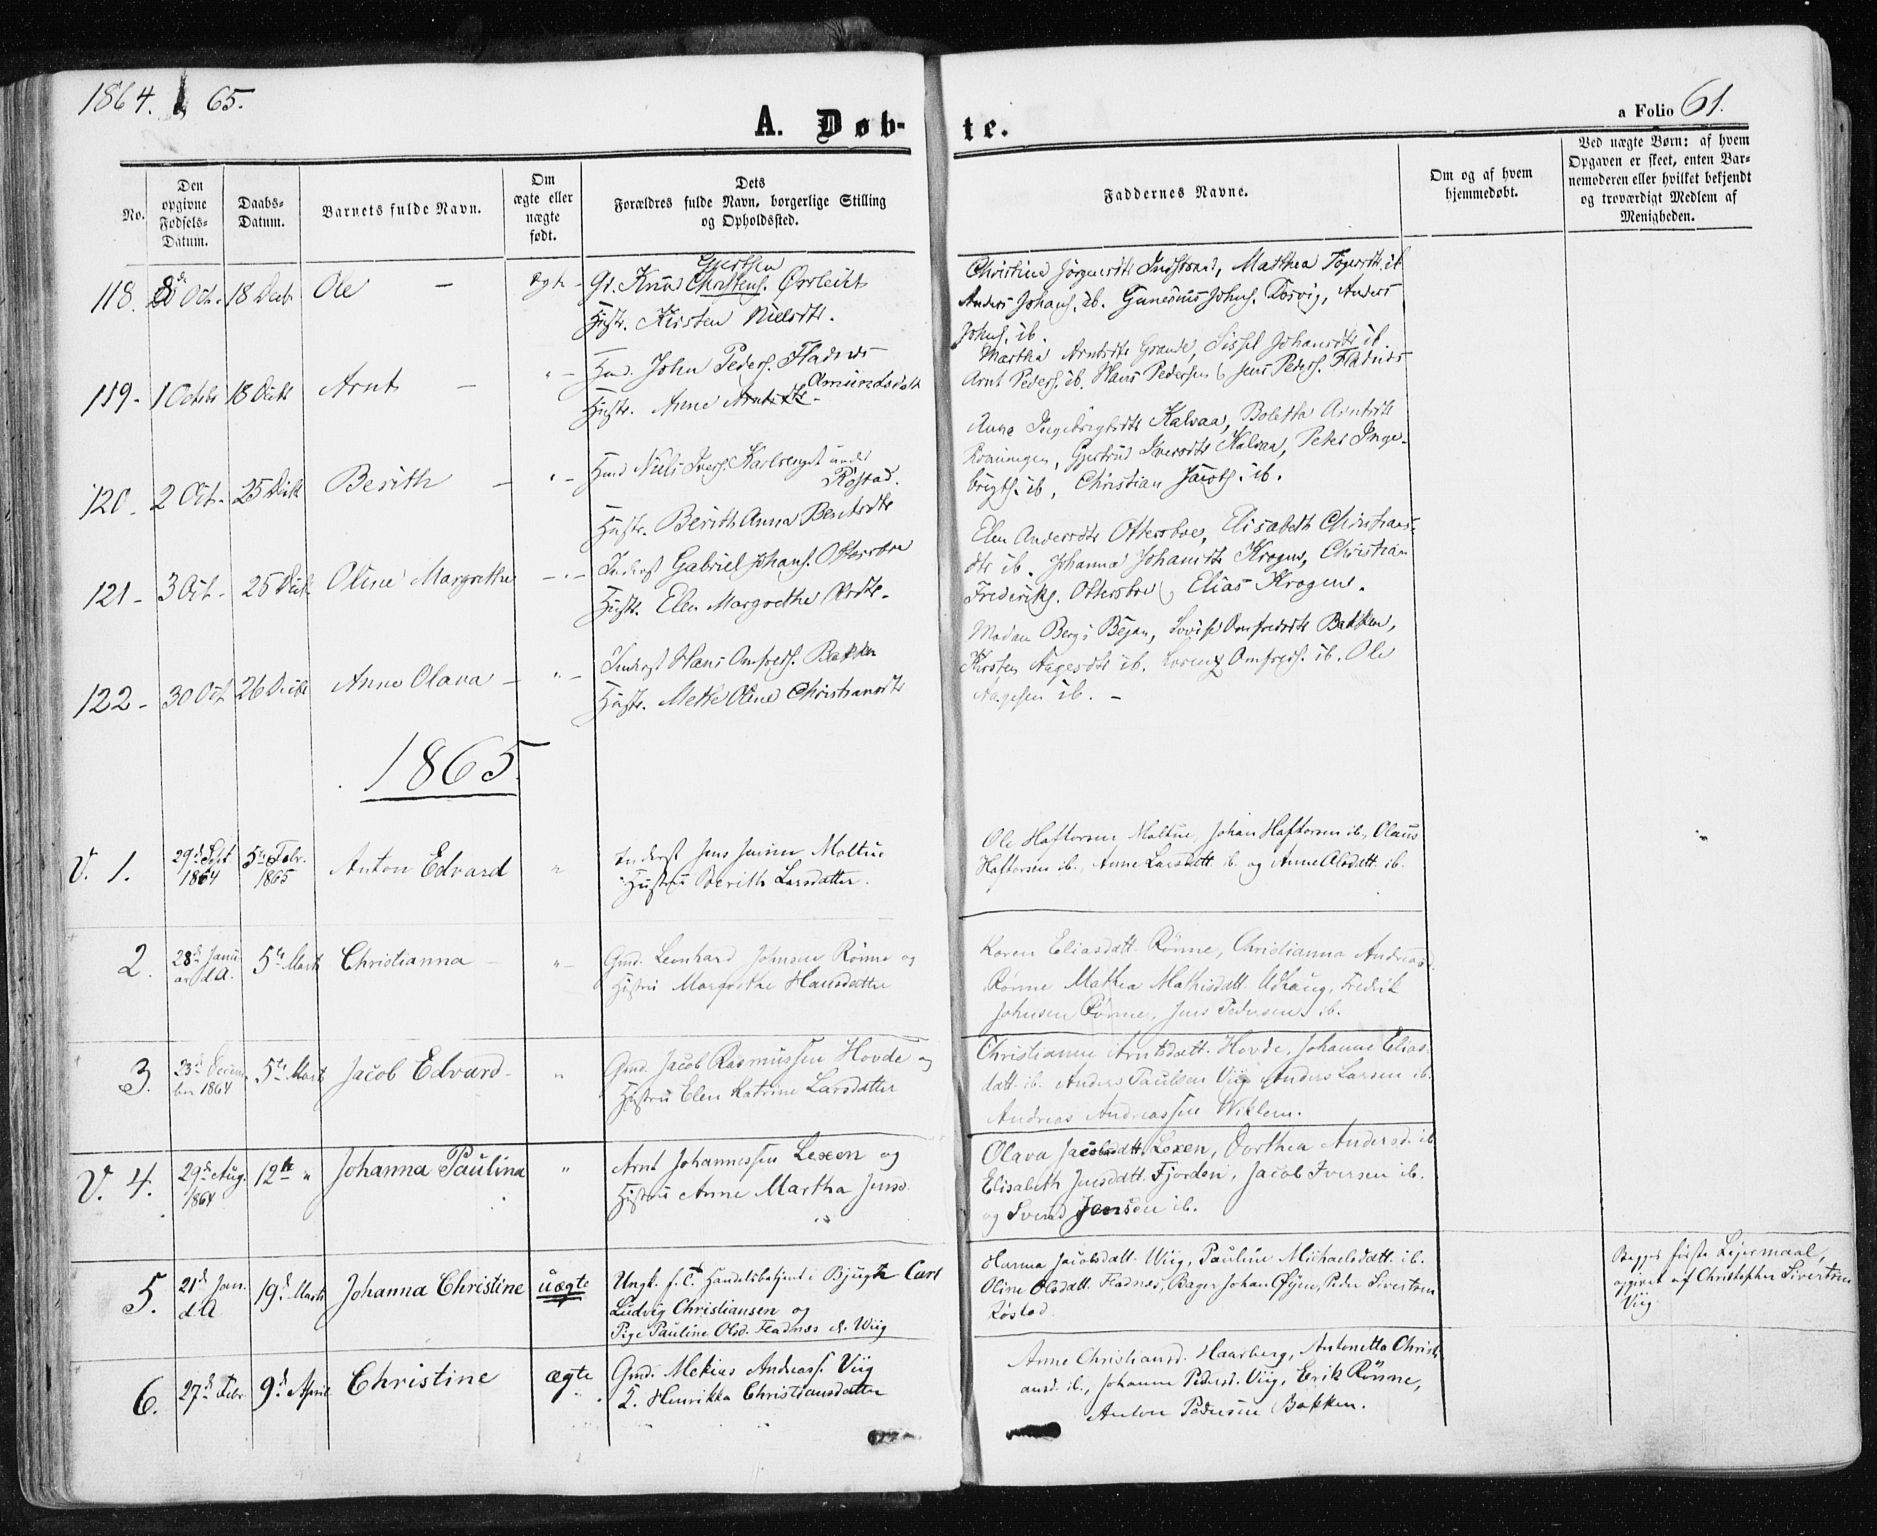 1864. 65.
A. Døb-
te.
a Folio 61.
No.
Den opgivne Fødsels-Datum.
Daabs-Datum.
Barnets fulde Navn.
Om ægte eller uægte født.
Dets Forældres fulde Navn, borgerlige Stilling og Opholdssted.
Faddernes Navne.
Om og af hvem hjemmedøbt.
Ved uægte Børn: af hvem Opgaven er skeet, enten Barnemoderen eller hvilket bekjendt og troværdigt Medlem af Menigheden.
118. Oct. 18 Decbr Ole — Ægte
Hustr. Kirsten Nielsdtr.
Anders Johans. ib. Johns. Anders
Johns. ib.
119 - 1 Octbr 18 Decbr Arnt — " —
John Peders. Fladnes
Hustr. Anne Amundsdatt
Martha Arntsdtr Grande, Sissel Johansdtr ib.
Arnt Peders. ib. Hans Pedersen & Jens Peders. Fladnes
120 - 2 Oct. 25 Decbr Berith — " —
Niels Ivers. Karlsenget under
Røstad.
Hustr. Berith Anna Bentsdtr
Anne Ingebrigtsdtr Kalvaa, Boletta Arntsdtr
Gjertrud Iversdtr Kalvaa, Peter Inge-
brigts. ib, Christian Jacobs. ib.
121 - 3 Oct. 25 Decbr Oline Margrethe — " —
Inderst Gabriel Johans. Ottersboe
Hustr. Elen Margrethe
Elen Andersdtr Ottersboe, Elisabeth Christians-
dtr ib. Johanna Johansdtr Krogen, Christian
Frederiks. Ottersboe & Elias Krogen.
122 - 30 Oct. 26 Decbr Anne Olava — " —
Inderst Hans Omfreds. Bakken
Hustr. Mette Oline Christiansdtr
Madam Berg Bejan, Lovise Omfredsdtr Bakken,
Kirsten Aagesdtr ib. Lorentz Omfreds. ib. Ole
Aagesen ib. —
1865.
V. 1. 29d Sept 1864 5te Febr. 1865 Anton Edvard "
Inderst Jens Jensen Moltue
Hustru Berith Larsdatter.
Ole Haftorsen Moltue, Johan Haftorsen ib., Olaus
Haftorsen ib., Anne Larsdatt. ib. og Anne Olsdatt. ib.
2. 28d Januar d.A. 5te Marts Christianna — " —
Gmd. Leonhard Johnsen Rønne og
Hustru Margrethe Hansdatter
Karen Eliasdatt. Rønne, Christianna Andreasd.
Rønne Mathea Mathisdatt. Udhaug, Fredrik
Johnsen Rønne, Jens Pedersen ib.
3. 23d December 1864 5te Marts Jacob Edvard "
Gmd. Jacob Rasmussen Hovde og
Hustru Elen Katrine Larsdatter
Christianne Arntsdatt. Hovde, Johanne Elias-
datt. ib. Anders Paulsen Viig Anders Larsen ib.
Andreas Andreassen Wiklem.
V. 4. 29d Aug. 1864 12te " Johanna Paulina "
Arnt Johannessen Lexen og
Hustru Anne Martha Jensd.
Olava Jacobsdatt. Lexen, Dorthea Andersd. ib
Elisabeth Jensdatt. Fjorden, Jacob Iversen ib.
og Jensen ib.
5. 21d Jan. d.A 19d Marts Johanna Christine uægte
Ungk. f.T. Handelsbetjent i Bjugn Carl
Ludvig Christiansen og
Pige Pauline Olsd. Fladnæs d. Viig
Hanna Jacobsdatt. Viig, Pauline Michaelsdatt. ib.
Oline Olsdatt. Fladnes, Bager Johan Øyen, Peder Sivertsen
Røstad
Begges første Lejermaal,
opgivet af Christopher Sivertsen
Viig
6. 27d Febr 9d April Christine ægte
Gmd. Mekius Andreass. Viig
H. Henrikka Christiansdatter
Anne Christiansd. Haarberg, Antonetta Christi-
ansd. ib., Johanne Pedersd. Viig, Erik Rønne,
Anton Pedersen Bakken.